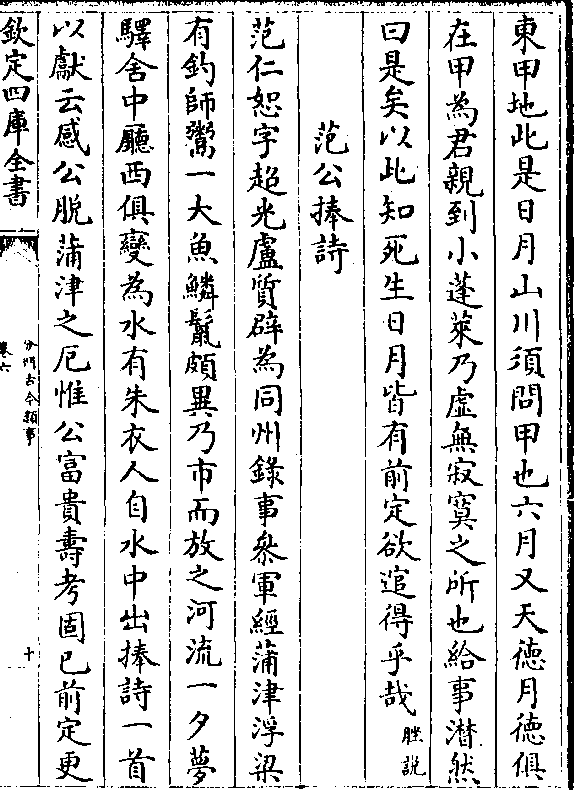 東甲地此是日月山川須問甲也六月又天徳月徳俱
在甲為君親到小蓬萊乃虛無寂寞之所也給事潜然
曰是矣以此知死生日月皆有前定欲逭得乎哉 脞説
范公捧詩
范仁恕字超光盧質辟為同州錄事叅軍經蒲津浮梁
有釣師鬻一大魚鱗鬛頗異乃市而放之河流一夕夢
驛舍中廳西俱變為水有朱衣人自水中出捧詩一首
以獻云感公脱蒲津之厄惟公富貴壽考固已前定更
欽定四庫全書
分門古今類事
卷六
十